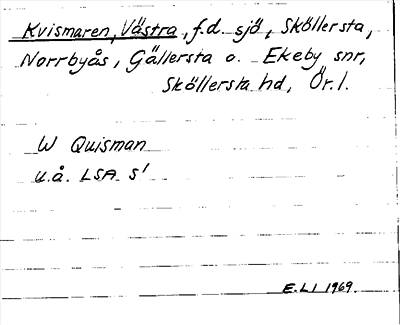 Kvismaren, Västra, f.d. sjö, Sköllersta,
Norrbyås, Gällersta o. Ekeby snr,
Sköllersta hd, Ör.l.
W Quisman
u.å. LSA S¹
E.L1 1969.